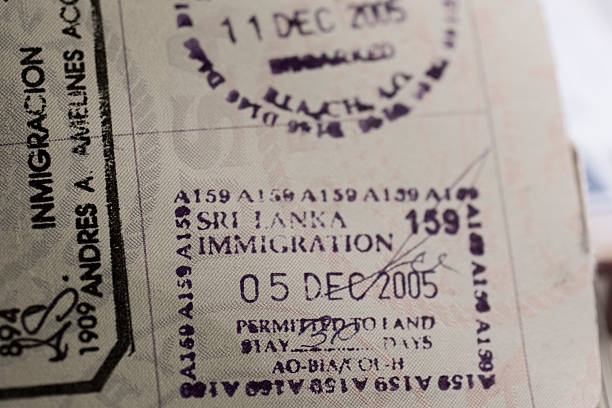 11 DEC 2005
EMBARKED
D146 D146
A159 A159 A159 A159 A159
SRI LANKA 159
IMMIGRATION
05 DEC 2005
PERMITTED TO LAND
STAY 30 DAYS
AO-BIA/COL-H
A159 A159 A159 A159 A159
INMIGRACION
ANDRES A. AMELINES ACO
894
1909